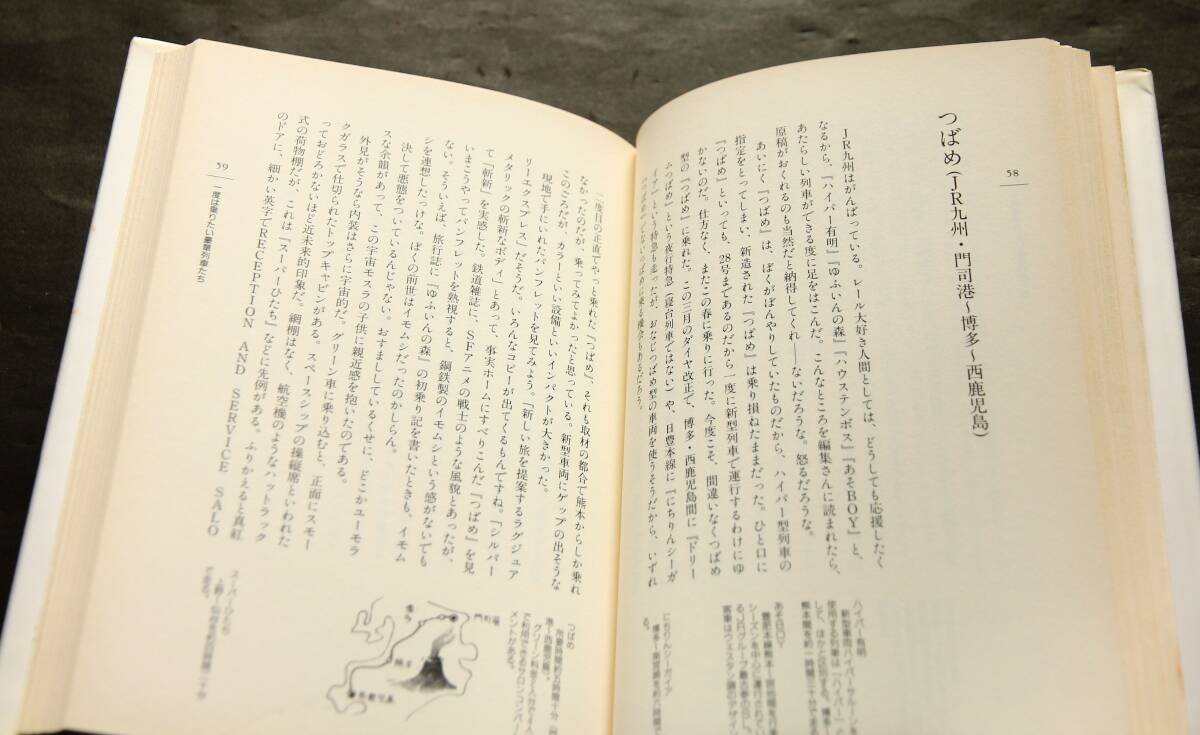 58
つばめ(JR九州・門司港〜博多〜西鹿児島)
JR九州はがんばっている。レール大好き人間としては、どうしても応援したく
なるから、『ハイパー有明』『ゆふいんの森』『ハウステンボス』『あそBOY』と、
あたらしい列車ができる度に足をはこんだ。こんなところを編集さんに読まれたら、
原稿がおくれるのも当然だと納得してくれ――ないだろうな。怒るだろうな。
あいにく『つばめ』は、ぼくがぼんやりしていたものだから、ハイパー型列車の
指定をとってしまい、新造された『つばめ』は乗り損ねたままだった。ひと口に
『つばめ』といっても、28号まであるのだから一度に新型列車で運行するわけにゆ
かないのだ。仕方なく、またこの春に乗りに行った。今度こそ、間違いなくつばめ
型の『つばめ』に乗れた。この三月のダイヤ改正で、博多・西鹿児島間に『ドリー
ムつばめ』という夜行特急(寝台列車ではない)や、日豊本線に『にちりんシーガ
イヤ』という特急も走ったが、おなじつばめ型の車両を使うそうだから、いずれ
ハイパー有明
新型車両ハイパーサルーンを
使用する列車は「ハイパー」
して、ほかと区別する。博多〜
熊本間を約一時間二十分で走る
あそBOY
豊肥本線熊本・宮地間を
シーズンを中心に運行されてい
る、JRグループ最古参のSL。
客車はウェスタン調のデザイン
にちりんシーガイア
博多〜南宮崎を約六時間で
る。
二度目の正直でやっと乗れた『つばめ』、それも取材の都合で熊本からしか乗れ
なかったのだが、乗ってみてよかったと思っている。新型車両にゲップの出そうな
このごろだが、カラーといい設備といいインパクトが大きかった。
現地で手にいれたパンフレットを見てみよう。「新しい旅を提案するラグジュア
リーエクスプレス」だそうだ。いろんなコピーが出てくるもんですね。「シルバー
メタリックの斬新なボディ」とあって、事実ホームにすべりこんだ『つばめ』を見
て「斬新」を実感した。鉄道雑誌に、SFアニメの戦士のような風貌とあったが、
いまこうやってパンフレットを熟視すると、鋼鉄製のイモムシという感がないでも
ない。そういえば、旅行誌に『ゆふいんの森』の初乗り記を書いたときも、イモム
シを連想したっけな。ぼくの前世はイモムシだったのかしらん。
決して悪態をついているんじゃない。おすまししているくせに、どこかユーモラ
スな余韻があって、この宇宙モスラの子供に親近感を抱いたのである。
外見がそうなら内装はさらに宇宙的だ。グリーン車に乗り込むと、正面にスモー
クガラスで仕切られたトップキャビンがある。スペースシップの操縦席といわれた
っておどろかないほど近未来的印象だ。網棚はなく、航空機のようなハットラック
式の荷物棚だが、これは『スーパーひたち』などに先例がある。ふりかえると真紅
のドアに、細かい英字でRECEPTION AND SERVICE SALO
つばめ
所要時間約五時間十分(門司
港〜西鹿児島)。
グリーン料金で2人分で4人ま
で利用できるサロンコンパート
メントがある。
門司港
博多
熊本
西鹿児島
スーパーひたち
上野〜仙台を約四時間二十分
で走る。
59
一度は乗りたい豪華列車たち